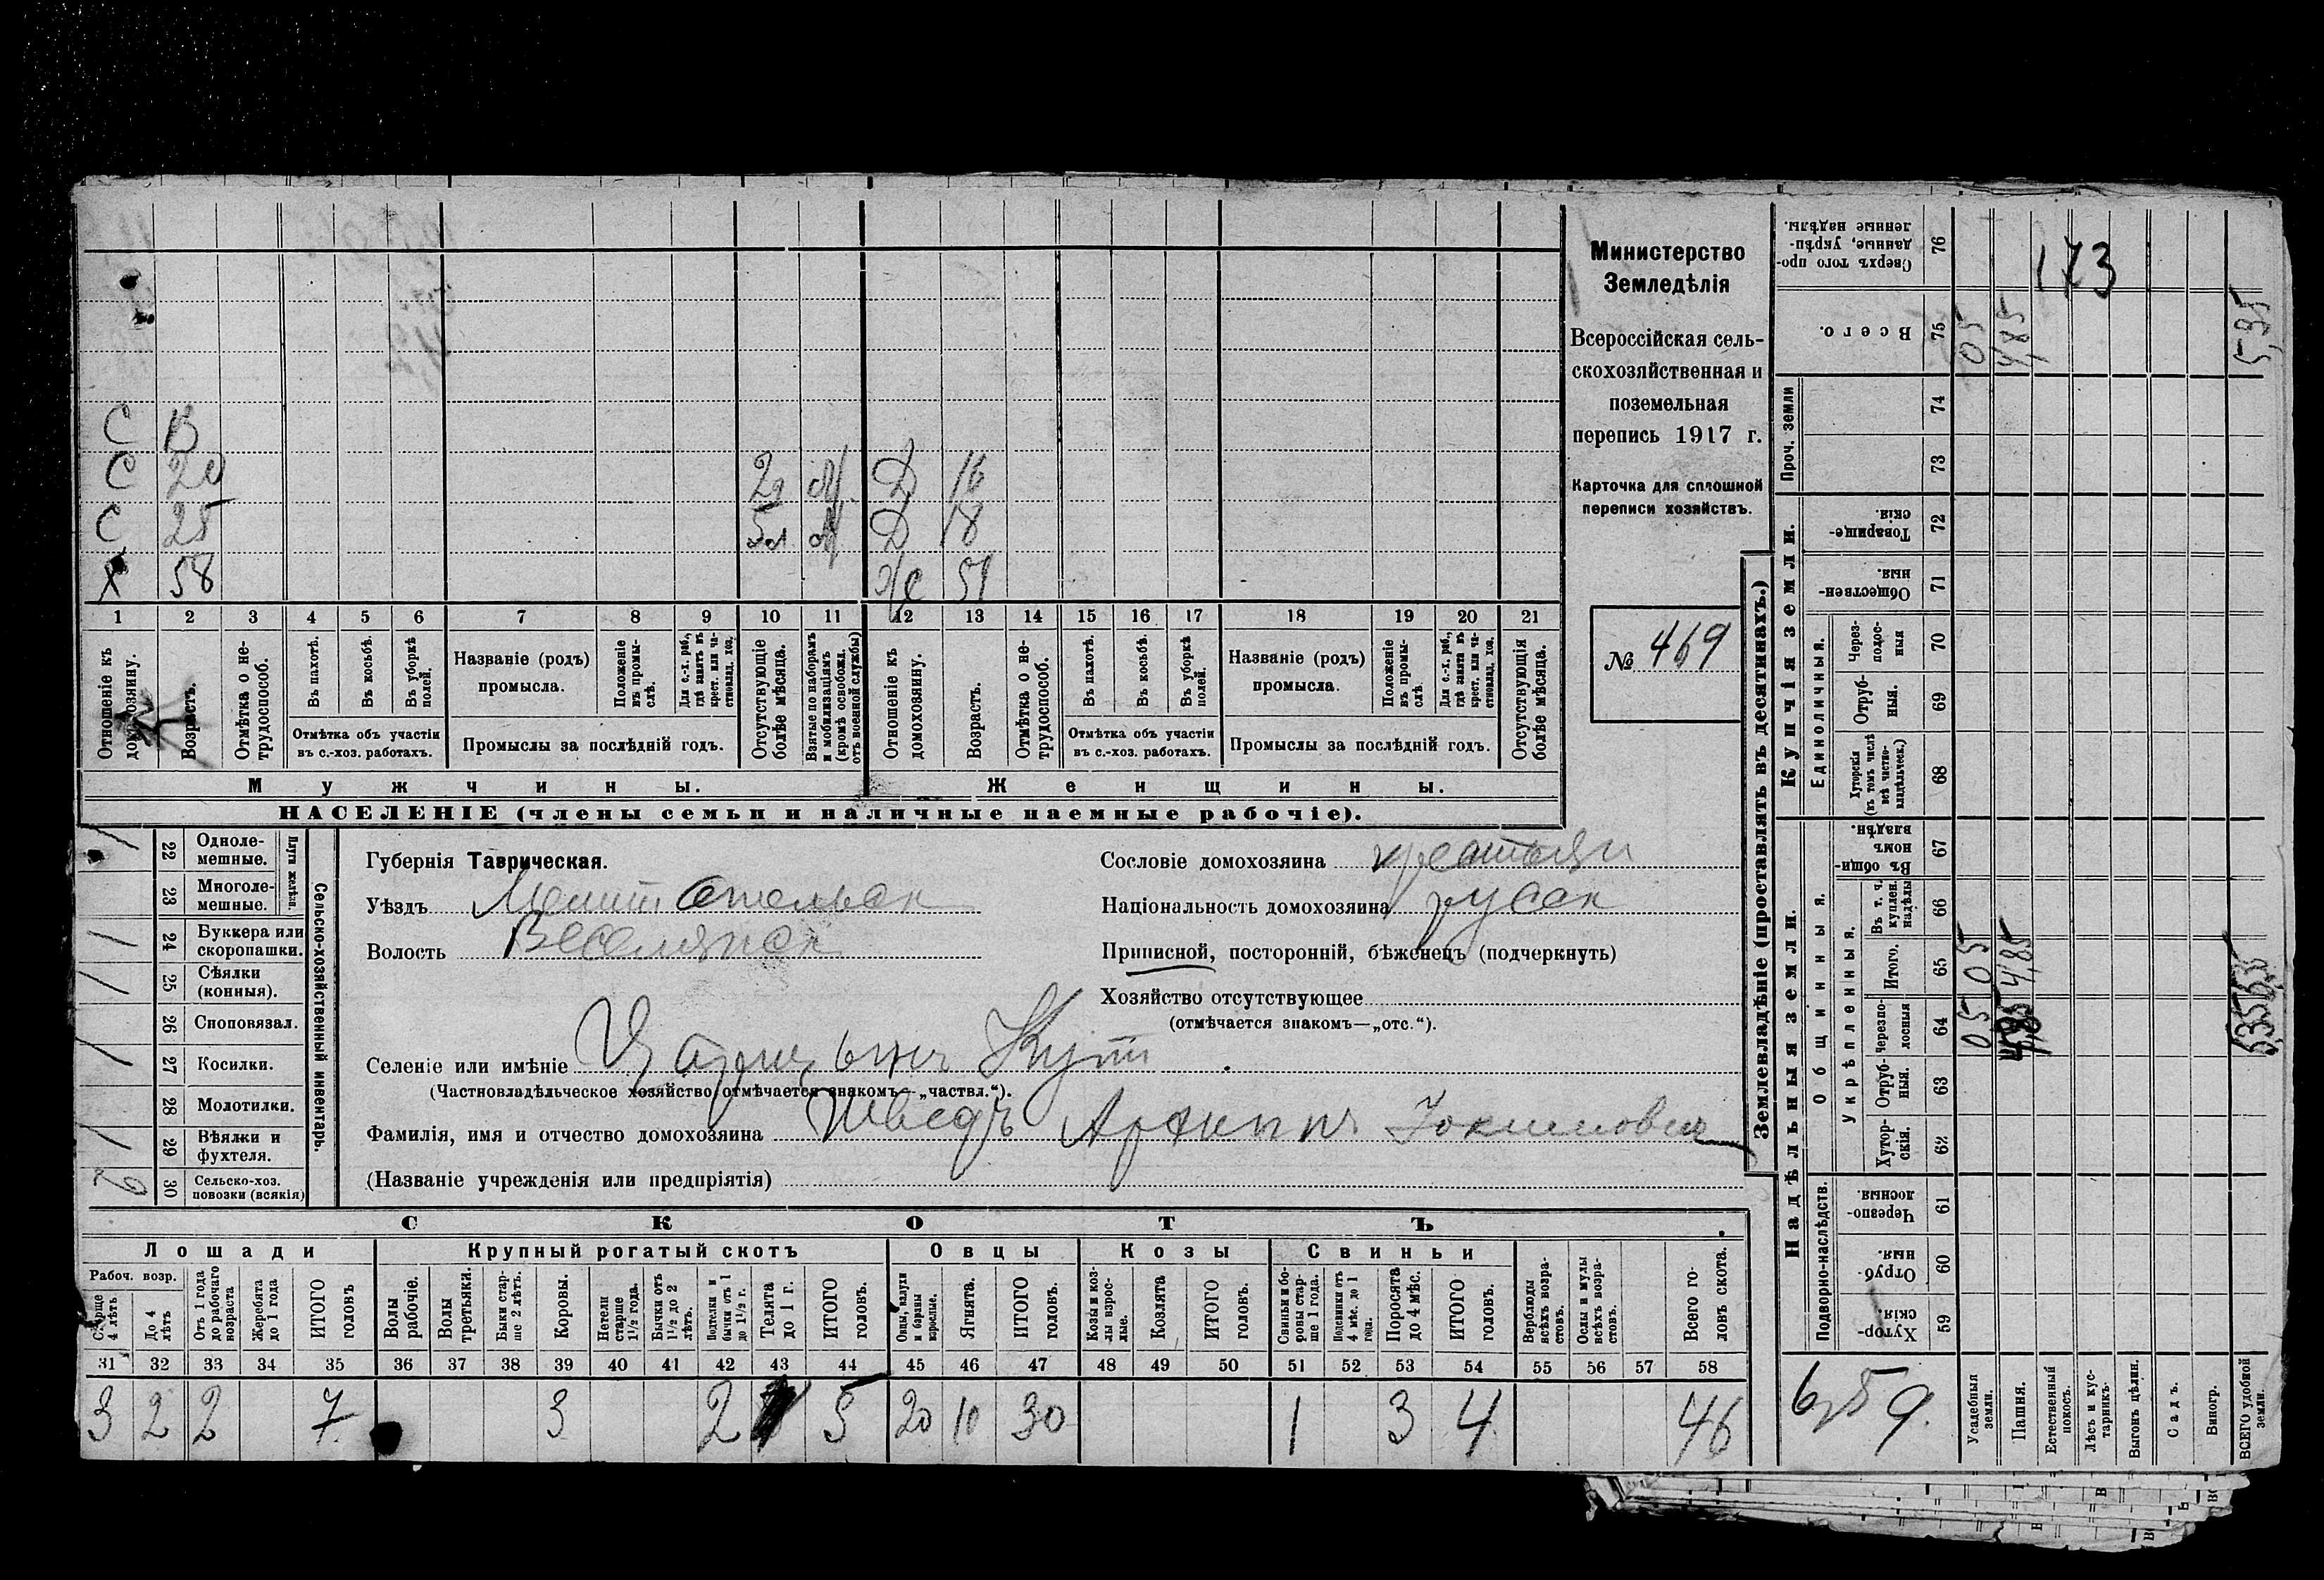 С В
С 20 2д М Д 16
С 25 5л М Д 18
Х 58 Ж 51
1 2 3 4 5 6 7 8 9 10 11 12 13 14 15 16 17 18 19 20 21
Отношеніе къ домохозяину.
Возрастъ.
Отмѣтка о не-трудоспособ.
Въ пахотѣ.
Въ косьбѣ.
Въ уборкѣ полей.
Отмѣтка объ участіи въ с.-хоз. работахъ.
Названіе (родъ) промысла.
Положеніе въ промы-слѣ.
Для с.-х. раб., гдѣ занятъ въ крест. или ча-стновлад. хоз.
Промыслы за послѣдній годъ.
Отсутствующіе болѣе мѣсяца.
Взятые по наборамъ и мобилизаціямъ (кромѣ освобожд. отъ военной службы)
Отношеніе къ домохозяину.
Возрастъ.
Отмѣтка о не-трудоспособ.
Въ пахотѣ.
Въ косьбѣ.
Въ уборкѣ полей.
Отмѣтка объ участіи въ с.-хоз. работахъ.
Названіе (родъ) промысла.
Положеніе въ промы-слѣ.
Для с.-х. раб., гдѣ занята въ крест. или ча-стновлад. хоз.
Промыслы за послѣдній годъ.
Отсутствующія болѣе мѣсяца.
Мужчины. Женщины.
НАСЕЛЕНІЕ (члены семьи и наличные наемные рабочіе).
Министерство
Земледѣлія
Всероссійская сель-
скохозяйственная и
поземельная
перепись 1917 г.
Карточка для сплошной
переписи хозяйствъ.
№ 469
Плуги желѣзн.
Сельско-хозяйственный инвентарь.
1 22 Одноле-мешные.
23 Многоле-мешные.
1 24 Буккера или скоропашки.
1 25 Сѣялки (конныя).
26 Сноповязал.
1 27 Косилки.
28 Молотилки.
1 29 Вѣялки и фухтеля.
2 30 Сельско-хоз. повозки (всякія)
Губернія Таврическая.
Уѣздъ Мелитопольск
Волость Веселянск
Сословіе домохозяина крестьян
Національность домохозяина русск
Приписной, посторонній, бѣженецъ (подчеркнуть)
Хозяйство отсутствующее
(отмѣчается знакомъ—„отс.“).
Селеніе или имѣніе Царицынъ Кутъ
(Частновладѣльческое хозяйство отмѣчается знакомъ—„частвл.“).
Фамилія, имя и отчество домохозяина Шведъ Архиппъ Іокимович
(Названіе учрежденія или предпріятія)
СКОТЪ.
Лошади Крупный рогатый скотъ Овцы Козы Свиньи
Рабоч. возр.
Старше 4 лѣтъ
До 4 лѣтъ
Отъ 1 года до рабочаго возраста
Жеребята до 1 года
ИТОГО головъ
Волы рабочіе.
Волы третьяки.
Быки стар-ше 2 лѣтъ.
Коровы.
Нетели старше 1½ года.
Бычки отъ 1½ до 2 лѣтъ.
Подтелки и бычки отъ 1 до 1½ г.
Телята до 1 г.
ИТОГО головъ.
Овцы, валухи и бараны взрослые.
Ягнята.
ИТОГО головъ.
Козы и коз-лы взрос-лые.
Козлята
ИТОГО головъ.
Свиньи и бо-ровы стар-ше 1 года.
Подсвинки отъ 4 мѣс. до 1 года.
Поросята до 4 мѣс.
ИТОГО головъ.
Верблюды всѣхъ возра-стовъ.
Ослы и мулы всѣхъ возра-стовъ.
Всего го-ловъ скота.
31 32 33 34 35 36 37 38 39 40 41 42 43 44 45 46 47 48 49 50 51 52 53 54 55 56 57 58
3 2 2 7 3 2 5 20 10 30 1 3 4 46
Землевладѣніе (проставлять въ десятинахъ.)
Надѣльныя земли. Купчія земли. Проч. земли
Подворно-наслѣдств.
Общинныя.
Укрѣпленныя.
Единоличныя.
Сверхъ того про-данные, укрѣп-ленные надѣлы. 76 173
Всего. 75 05 4,85 5,35
74
73
Товарище-скія. 72
Обществен-ныя. 71
Через-полос-ныя 70
Отруб-ныя. 69
Хуторскія (въ томъ числѣ всѣ частно-владѣльческ.) 68
Въ общин-номъ владѣн. 67
Въ т. ч. куплен. надѣлы 66
Итого. 65 05 4,85 5,35
Черезпо-лосныя 64 05 4,85 5,35
Отруб-ныя. 63
Хутор-скія. 62
Черезпо-лосныя. 61
Отруб-ныя. 60
Хутор-скія. 59
Усадебныя земли.
Пашня.
Естественный покосъ.
Лѣсъ и кус-тарникъ.
Выгонъ цѣлин.
Садъ.
Виногр.
ВСЕГО удобной земли.